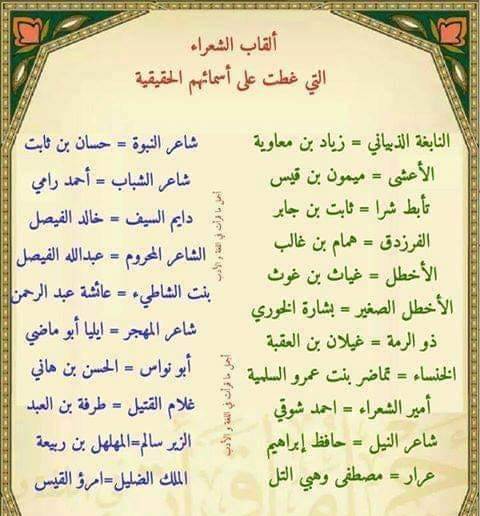 ألقاب الشعراء
التي غطت على أسمائهم الحقيقية
النابغة الذبياني = زياد بن معاوية
الأعشى = ميمون بن قيس
تأبط شرا = ثابت بن جابر
الفرزدق = همام بن غالب
الأخطل = غياث بن غوث
الأخطل الصغير = بشارة الخوري
ذو الرمة = غيلان بن العقبة
الخنساء = تماضر بنت عمرو السلمية
أمير الشعراء = احمد شوقي
شاعر النيل = حافظ إبراهيم
عرار = مصطفى وهبي التل
شاعر النبوة = حسان بن ثابت
شاعر الشباب = أحمد رامي
دايم السيف = خالد الفيصل
الشاعر المحروم = عبدالله الفيصل
بنت الشاطيء = عائشة عبد الرحمن
شاعر المهجر = ايليا أبو ماضي
أبو نواس = الحسن بن هاني
غلام القتيل = طرفة بن العبد
الزير سالم=المهلهل بن ربيعة
الملك الضليل=امرؤ القيس
أجمل ما قرأت في اللغة و الأدب
أجمل ما قرأت في اللغة و الأدب